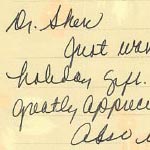 Dr. Sher
Just wan
holiday gift.
greatly apprec
Also